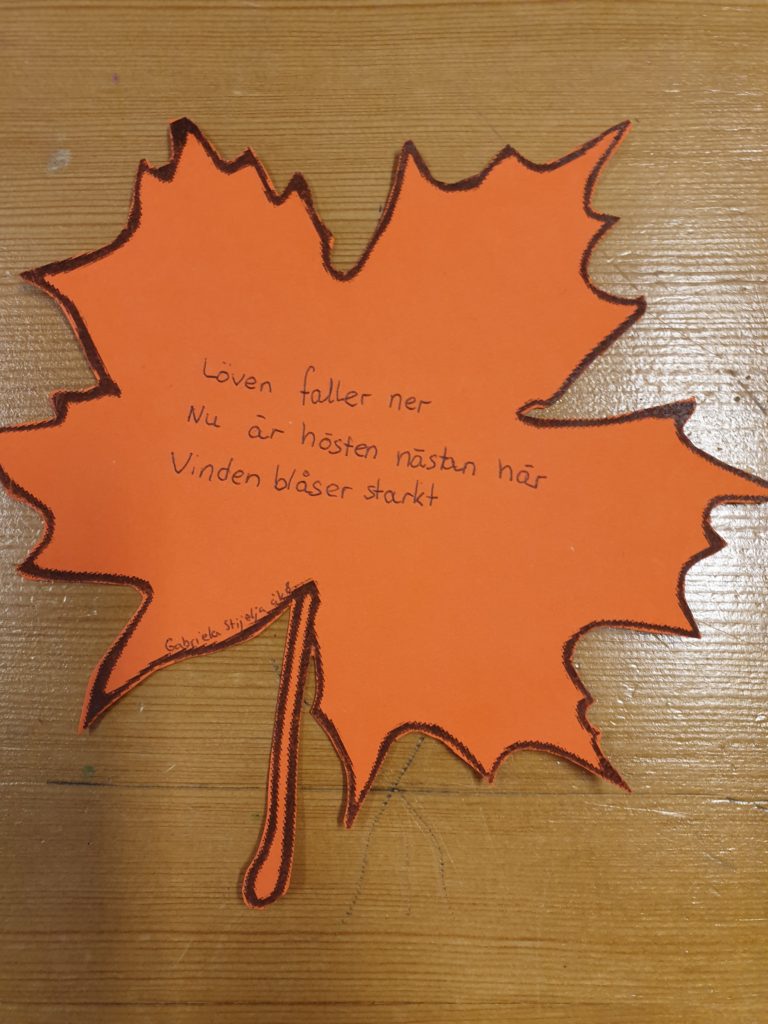 Löven faller ner
Nu är hösten nästan här
Vinden blåser starkt
Gabriela Stijelja åk8